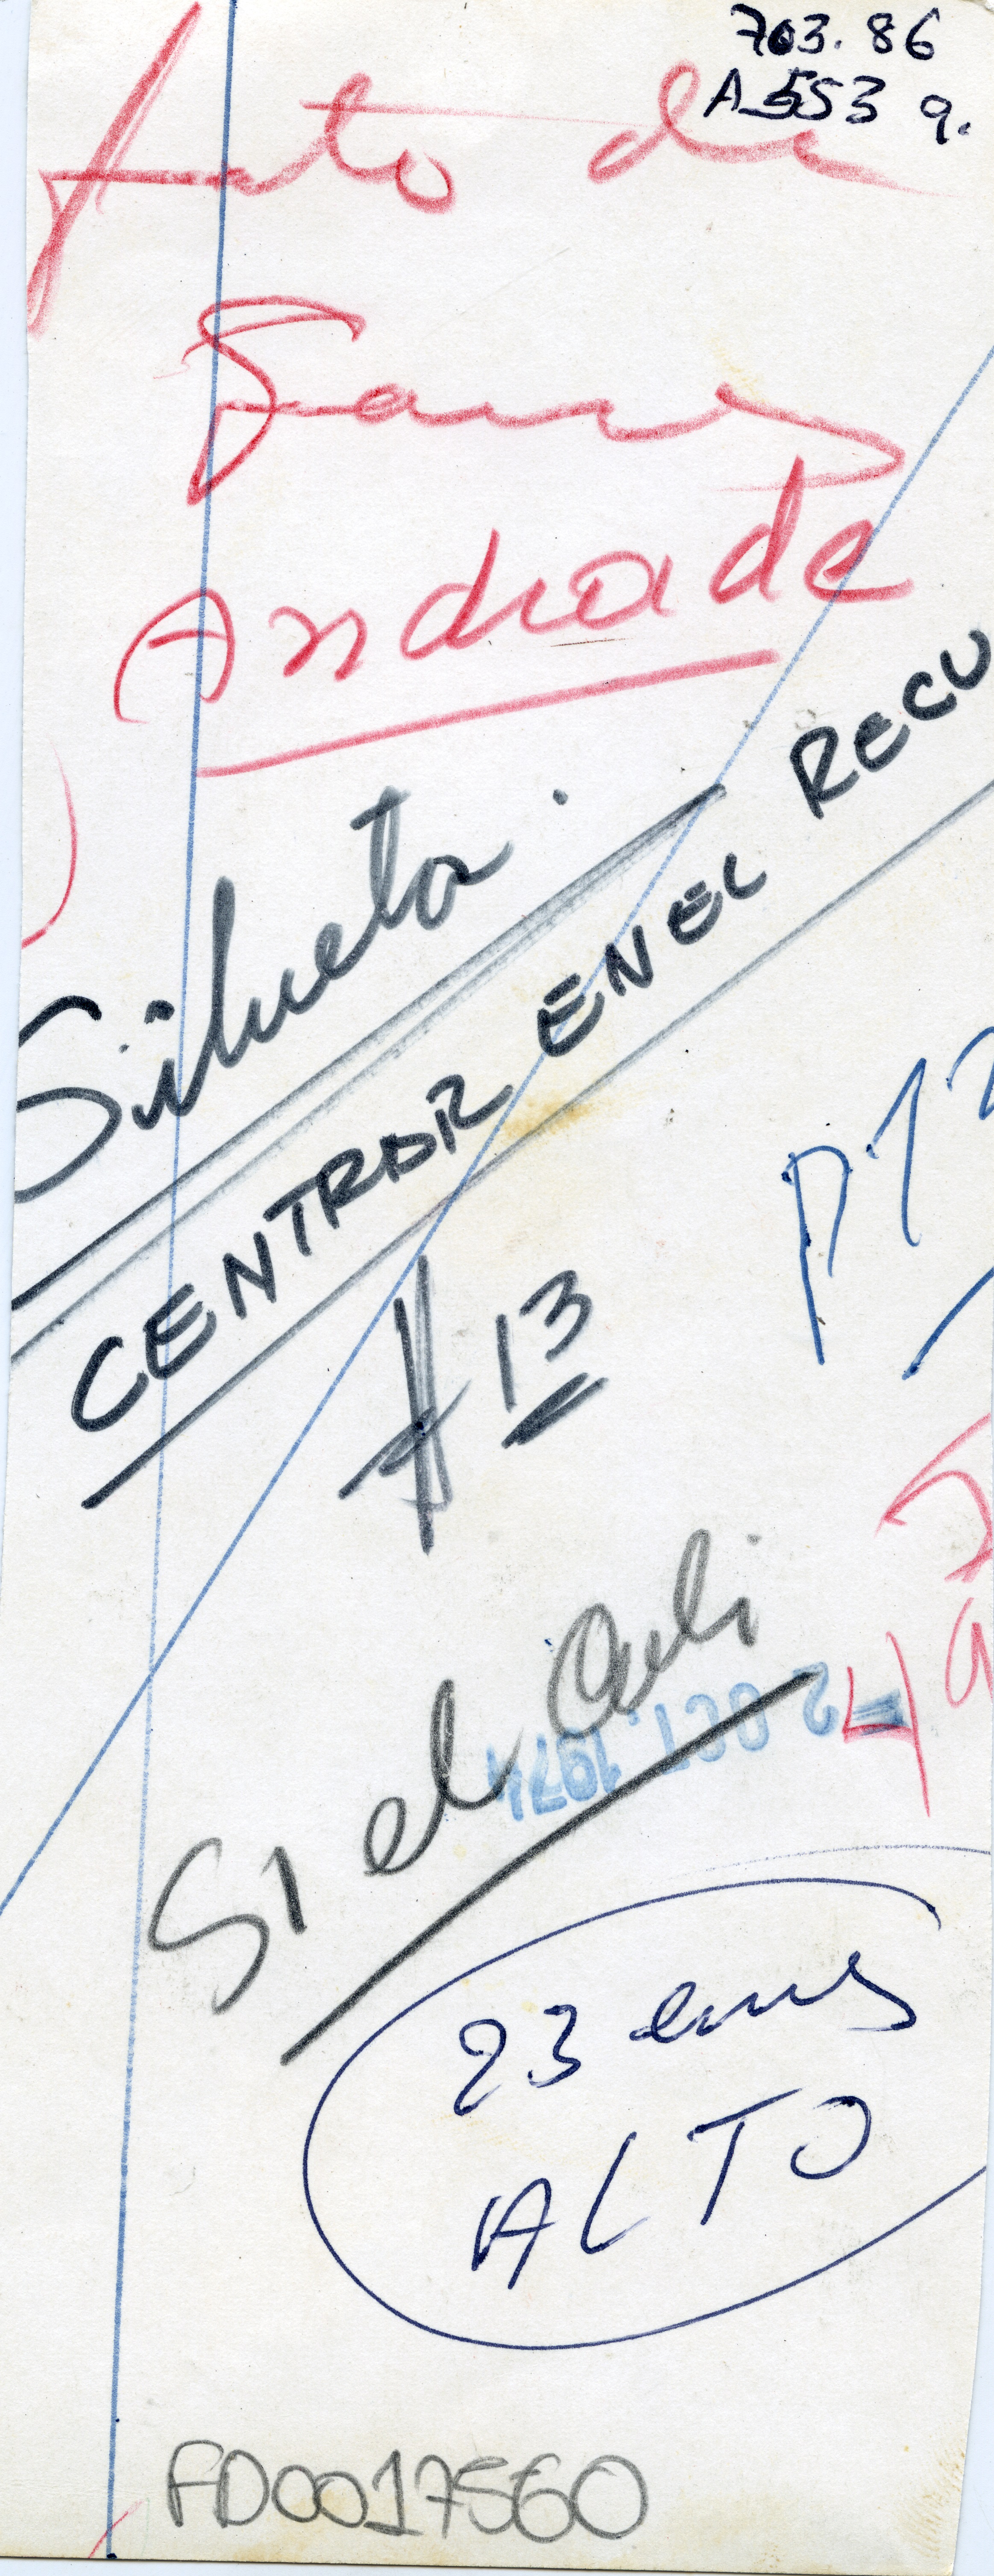 703.86
A553 9.
foto de
James
Andrade
Silueta.
CENTRAR EN EL RECU
#13
SI el
2 OCT. 1974
23 cms
ALTO
FD0017560